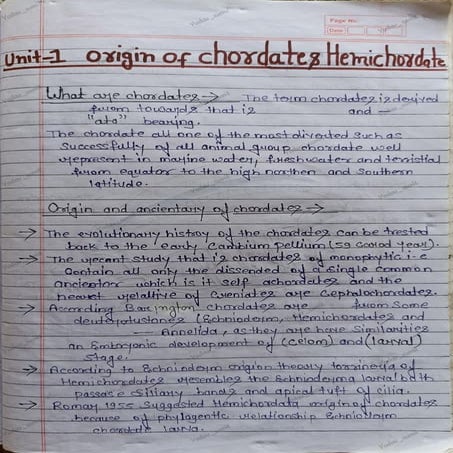 Page No.
Date
Unit-1 origin of chordates Hemichordate
What are chordates → The term chordates is derived
from towards that is and —
"ata" bearing.
The chordate all one of the most diverted such as
successfully of all animal group chordate well
represent in marine water, freshwater and terristial
from equator to the high northen and southern
latitude.
Origin and ancientary of chordates →
→ The evolutionary histroy of the chordates can be trested
back to the early Cambium pellium (59 year).
→ The recent study that is chordates of monophytic i-e
Contain all only the dissended of a single common
ancientor which is it self achordates and the
nearest relative of Creniates are Cephalochordates.
→ According Barrington chordates are from Some
deuterotustones (Echnioderm, Hemichordates and
Annelida, as they are have Similarities
an Embryonic development of (celom) and (larval)
stage.
→ According to Echoinderm origion theory of
Hemichordates resembles the Echnioderma larval both
passace Ciliary bands and apical tuft of cilia.
→ Romar, 1955 Suggested Hemichordata origin of chordates
because of phylogentic relationship Echnioderm
chordate larva.